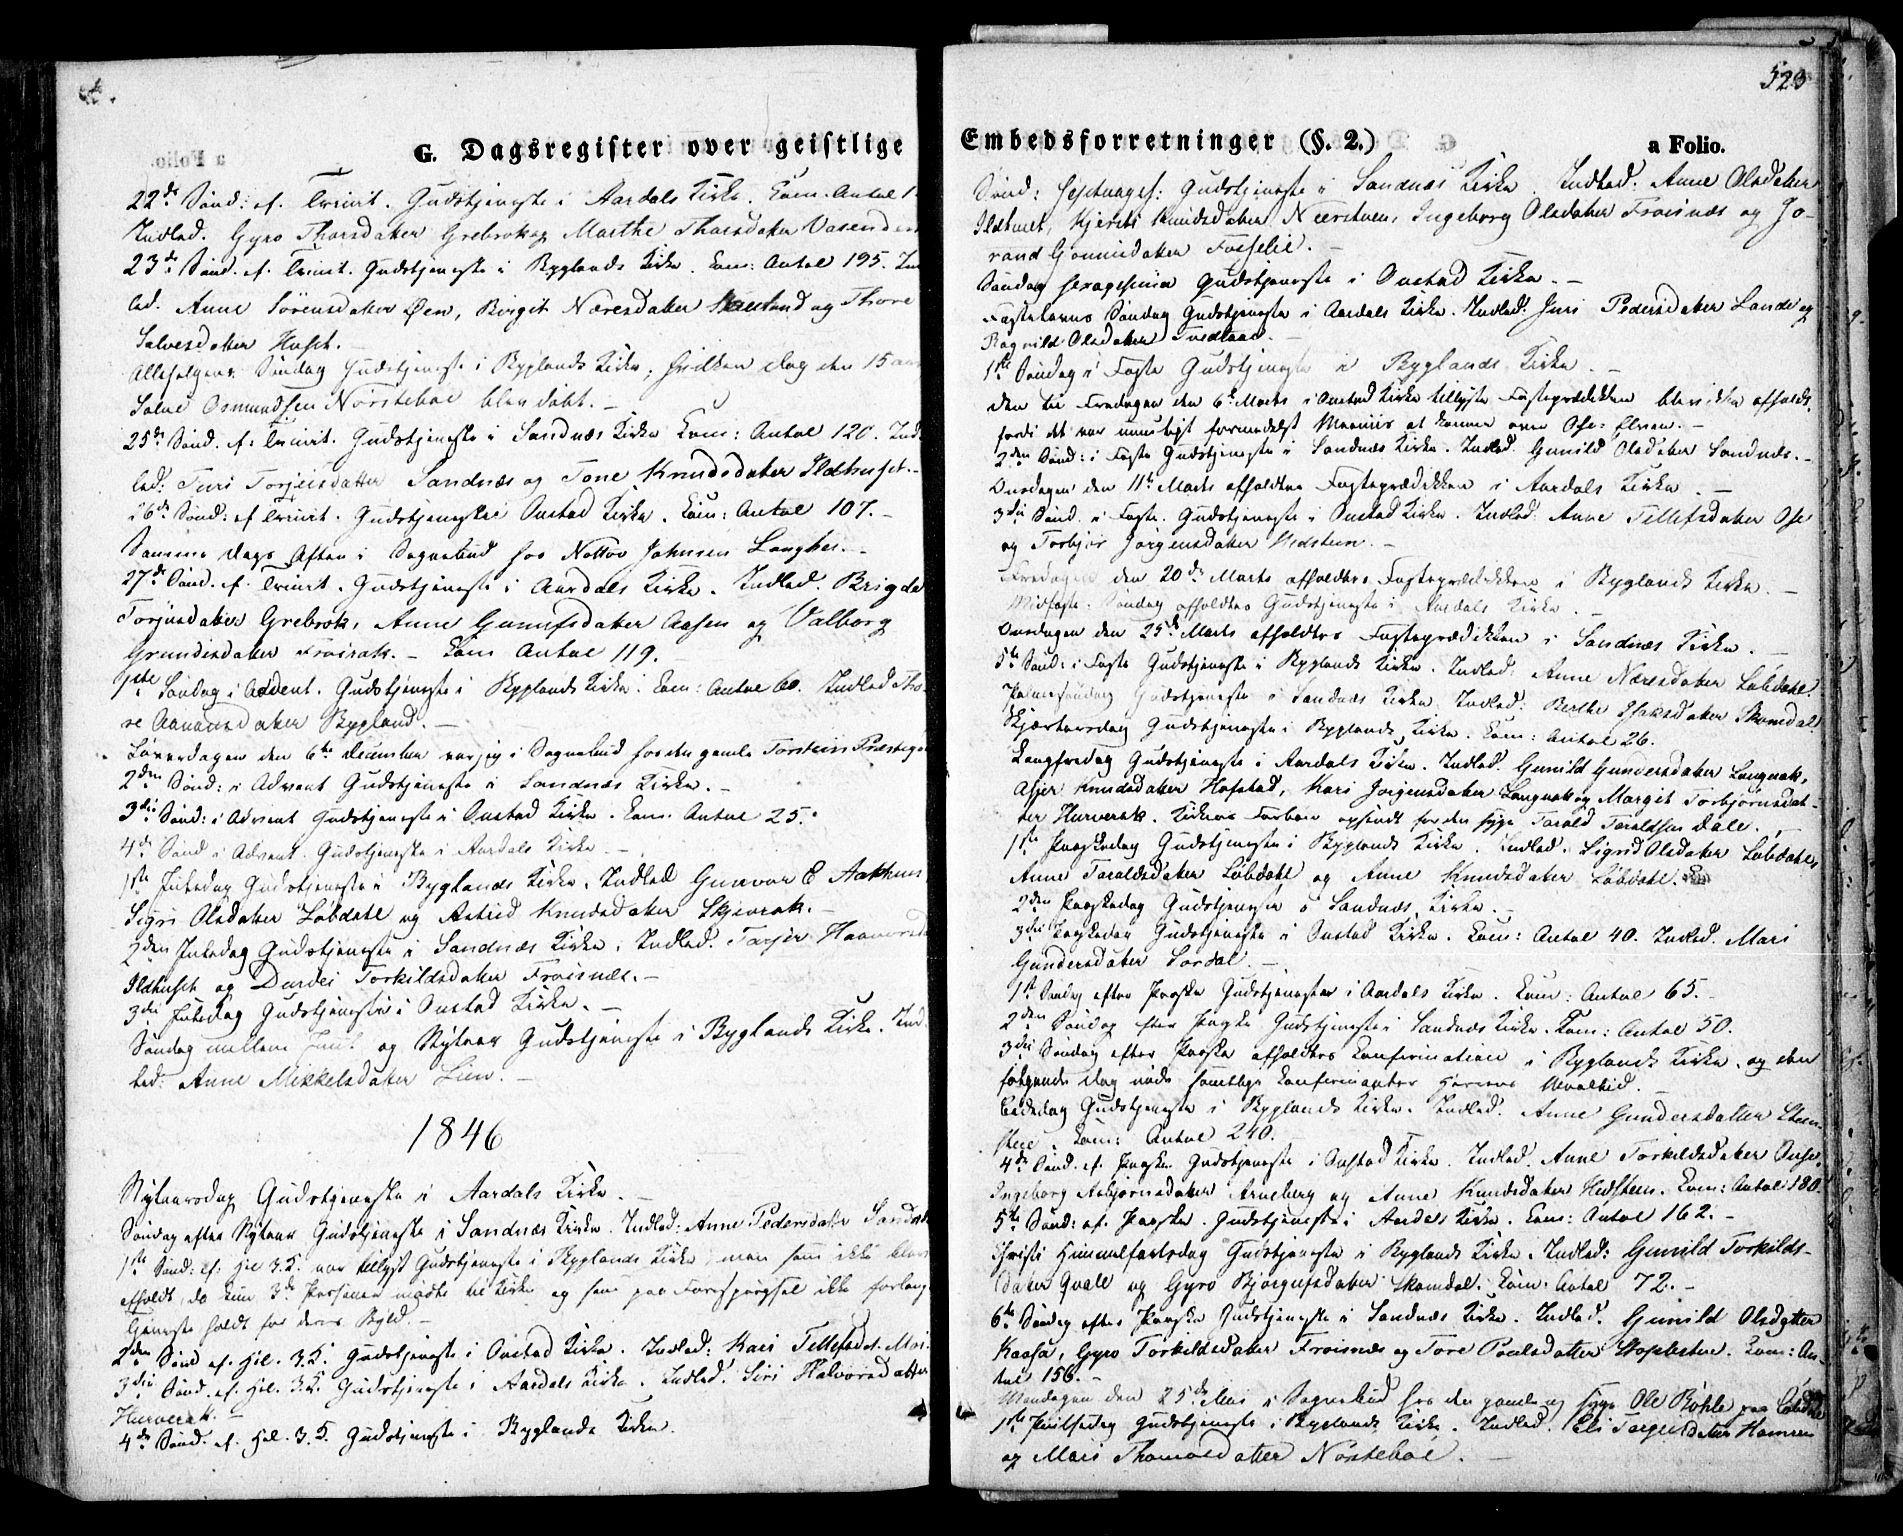 523
G. Dagsregister over geistlige
Embedsforretninger (§. 2.)
a Folio.
22de Sønd: ef. Trinit. Gudstjeneste i Aardals Kirke. Com. Antal
Indled. Gyro Tharsdatter Grebrok og Marthe Tharsdatter Vasenden
23de Sønd. ef. Trinit. Gudstjeneste i Byglands Kirke. Com: Antal 195. Ind
led. Anne Sörensdatter Øen, Birgit Næresdatter og Thore
Salvesdatter Huset.
Allehelgens Søndag Gudstjeneste i Byglands Kirke, hvilken Dag den 15
Salve Osmundsen Nørsteboe blev døbt.
25de Sønd. ef. Trinit. Gudstjeneste i Sandnæs Kirke Com: Antal 120. Ind
led: Turi Torjeisdatter Sandnæs og Tone Knudsdatter Ildhuset.
26de Sønd: ef Trinit. Gudstjeneste i Oustad Kirke. Com: Antal 107.
Samme Dags Aften i Sognebud hos Notto Johnsen Langhei.
27de Sønd. ef. Trinit. Gudstjeneste i Aardals Kirke. Indled. Brigde
Torjusdatter Grebrok, Anne Gunufsdatter Aasen og Valborg
datter Frøisak. Com Antal 119.
1ste Søndag i Advent. Gudstjeneste i Byglands Kirke. Com: Antal 60. Indled Tho-
re Aanonsdatter Bygland.
Løverdagen den 6te December var jeg i Sognebud hos den gamle Torstein
2den Sønd: i Advent Gudstjeneste i Sandnæs Kirke.
3die Sønd: i Advent Gudstjeneste i Oustad Kirke. Com. Antal 25.
4de Sønd i Advent. Gudstjeneste i Aardals Kirke
1ste Juledag Gudstjeneste i Byglands Kirke. Indled Gunvor E Aakhus
Sigri Olsdatter Løbdahl og Astrid Knudsdatter Skjevrak.
2den Juledag Gudstjeneste i Sandnæs Kirke. Indled. Tarjer Haavorsd
Ildhuset og Durdei Torkildsdatter Frøisnæs.
3die Juledag Gudstjeneste i Oustad Kirke.
Søndag mellem Juul og Nytaar Gudstjeneste i Byglands Kirke. Ind
led: Anne Mikkelsdatter Lien.
1846
Nytaarsdag Gudstjeneste i Aardals Kirke.
Søndag efter Nytaar Gudstjeneste i Sandnæs Kirke. Indled: Anne Pedersdatter Sandnæs
1ste Sønd: ef. Hel. 3. K. var tillyst Gudstjeneste i Byglands Kirke, men som ikke blev
afholdt, da kun 3de Personer mødte til Kirke og som paa Forespørgsel ikke forlang
Tjeneste holdt for deres Skyld.
2den Sønd ef. Hel. 3. K. Gudstjeneste i Oustad Kirke. Indled: Kari Tellefsdat.
3die Sønd. ef. Hel. 3. K. Gudstjeneste i Aardals Kirke. Indled. Siri Halvorsdatter
Hurverak.
4de Sønd. ef. Hel. 3. K. Gudstjeneste i Byglands Kirke.
Sønd: Septuages: Gudstjeneste i Sandnæs Kirke. Indled: Anne Olsdatter
Ildhuset, Kjersti Knudsdatter Nærstuen, Ingeborg Olsdatter Frøisnæs og Jo-
rand Gunnisdatter Fosselie.
Søndag Sexagesima Gudstjeneste i Oustad Kirke.
Fastelavns Søndag Gudstjeneste i Aardals Kirke. Indled: Juri Pedersdatter Lande og
Ragnild Olsdatter Tvedtaas.
1ste Søndag i Faste Gudstjeneste i Byglands Kirke.
Den til Fredagen den 6te Marts i Oustad Kirke tillyste Fasteprædikken blev ikke afholdt,
fordi det var umueligt formedelst at komme over Ose-Elven.
2den Sønd: i Faste Gudstjeneste i Sandnæs Kirke. Indled. Gunild Olsdatter Sandnæs.
Onsdagen den 11te Marts afholdtes Fasteprædikken i Aardals Kirke.
3die Sønd. i Faste. Gudstjeneste i Oustad Kirke. Indled. Anne Tellefsdatter Ose
og Torbjør Jørgensdatter Hedsteen.
Fredagen den 20de Marts afholdtes Fasteprædikken i Byglands Kirke.
Midfaste-Søndag afholdtes Gudstjeneste i Aardals Kirke.
Onsdagen den 25de Marts afholdtes Fasteprædikken i Sandnæs Kirke.
5te Sønd: i Faste Gudstjeneste i Byglands Kirke. Indled. Anne Næresdatter Løbdahl.
Palmesøndag Gudstjeneste i Sandnæs Kirke Indled: Berthe Isaksdatter Skomdal.
Skjærtorsdag Gudstjeneste i Byglands Kirke. Com: Antal 26.
Langfredag Gudstjeneste i Aardals Kirke. Indled. Gunild Gundersdatter Langnak,
Asjer Knudsdatter Hofstad, Kari Jørgensdatter Langnak og Margit Torbjørnsdat-
ter Hurverak. Kirkens Forbøn opsendt for den syge Tarald Taraldsen Dale.
1ste Paaskedag Gudstjeneste i Byglands Kirke. Indled. Sigrid Olsdatter Løbdahl,
Anne Taraldsdatter Løbdahl og Anne Knudsdatter Løbdahl.
2den Paaskedag Gudstjeneste i Sandnæs Kirke.
3die Paaskedag Gudstjeneste i Oustad Kirke. Com: Antal 40. Indled. Mari
Gundersdatter Sordal.
1ste Søndag efter Paaske Gudstjeneste i Aardals Kirke. Com: Antal 65.
2den Søndag efter Paaske Gudstjeneste i Sandnæs Kirke. Kom: Antal 50.
3die Søndag efter Paaske afholdtes Confirmation i Byglands Kirke, og den
følgende Dag nøde samtlige Confirmanter Herrens Maaltid.
Bededag Gudstjeneste i Byglands Kirke. Indled. Anne Gundersdatter
Com: Antal 240.
4de Sønd. ef. Paaske Gudstjeneste i Oustad Kirke. Indled. Anne Torkildsdatter Ose,
Ingeborg Asbjørnsdatter Arneberg og Anne Knudsdatter Hedsteen. Com: Antal 180.
5te Sønd: ef. Paaske. Gudstjeneste i Aardals Kirke. Com: Antal 162.
Christi Himmelfartsdag Gudstjeneste i Byglands Kirke. Indled: Gunild Torkilds-
datter Qvale og Gyro Bjørgufsdatter Skomdal. Com: Antal 72.
6te Søndag efter Paaske Gudstjeneste i Sandnæs Kirke. Indled. Gunild Olsdatter
Kaasa, Gyro Torkildsdatter Frøisnæs og Tore Poulsdatter Com: An-
tal 156.
Mandagen den 25de Mai i Sognebud hos den gamle og syge Ole Røhle paa
1ste Pintsedag Gudstjeneste i Byglands Kirke. Indled. Torjersdatter Hamren
og Mari Thomasdatter Nørsteboe.